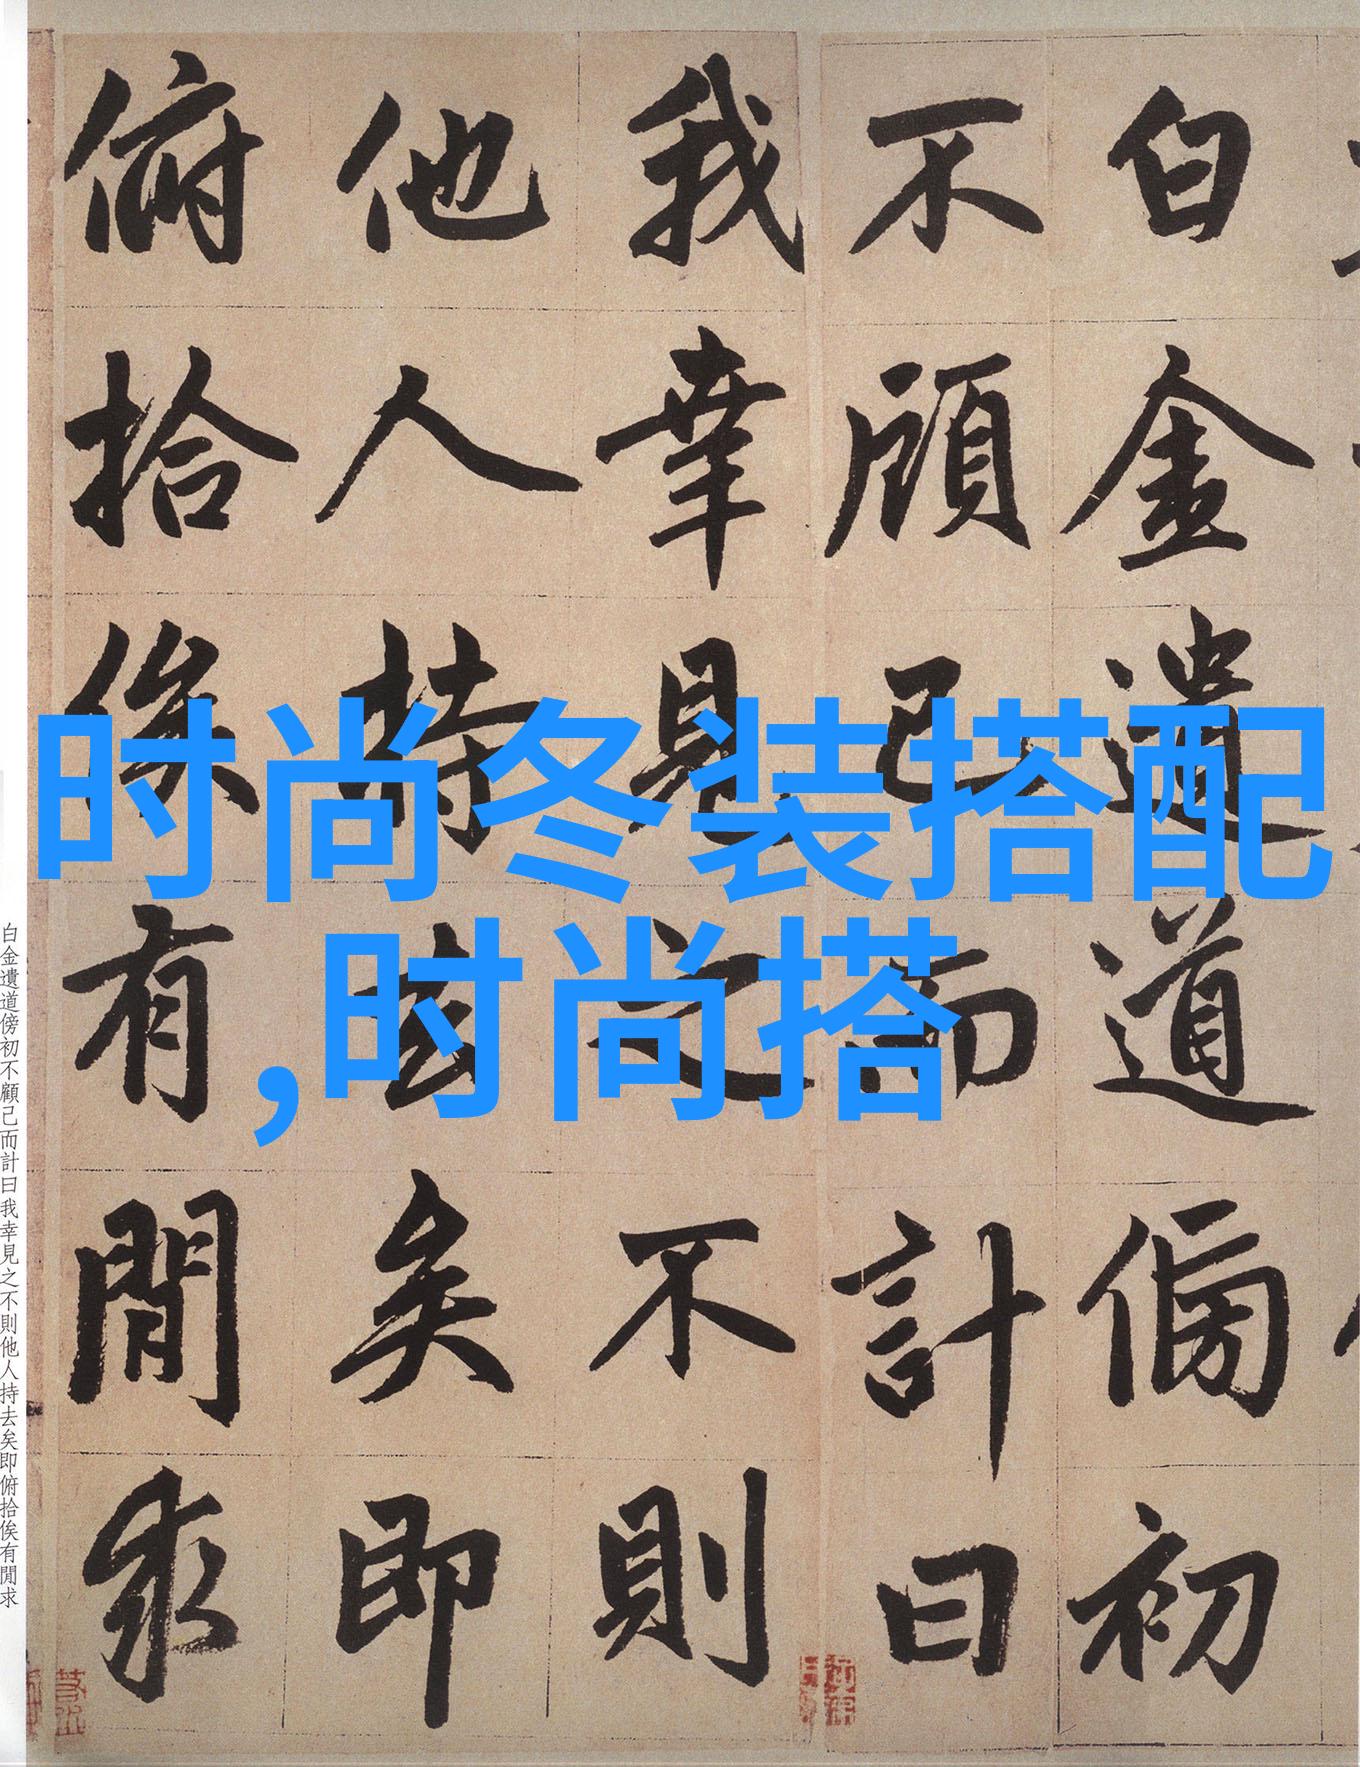 白金遺道傍初
不顧己而計曰
我幸見之不則
他人持去矣即
俯拾俟有閒求
时尚冬装搭配
,时尚搭
白金遺道傍初不顧己而計曰我幸見之不則他人持去矣即俯拾俟有閒求